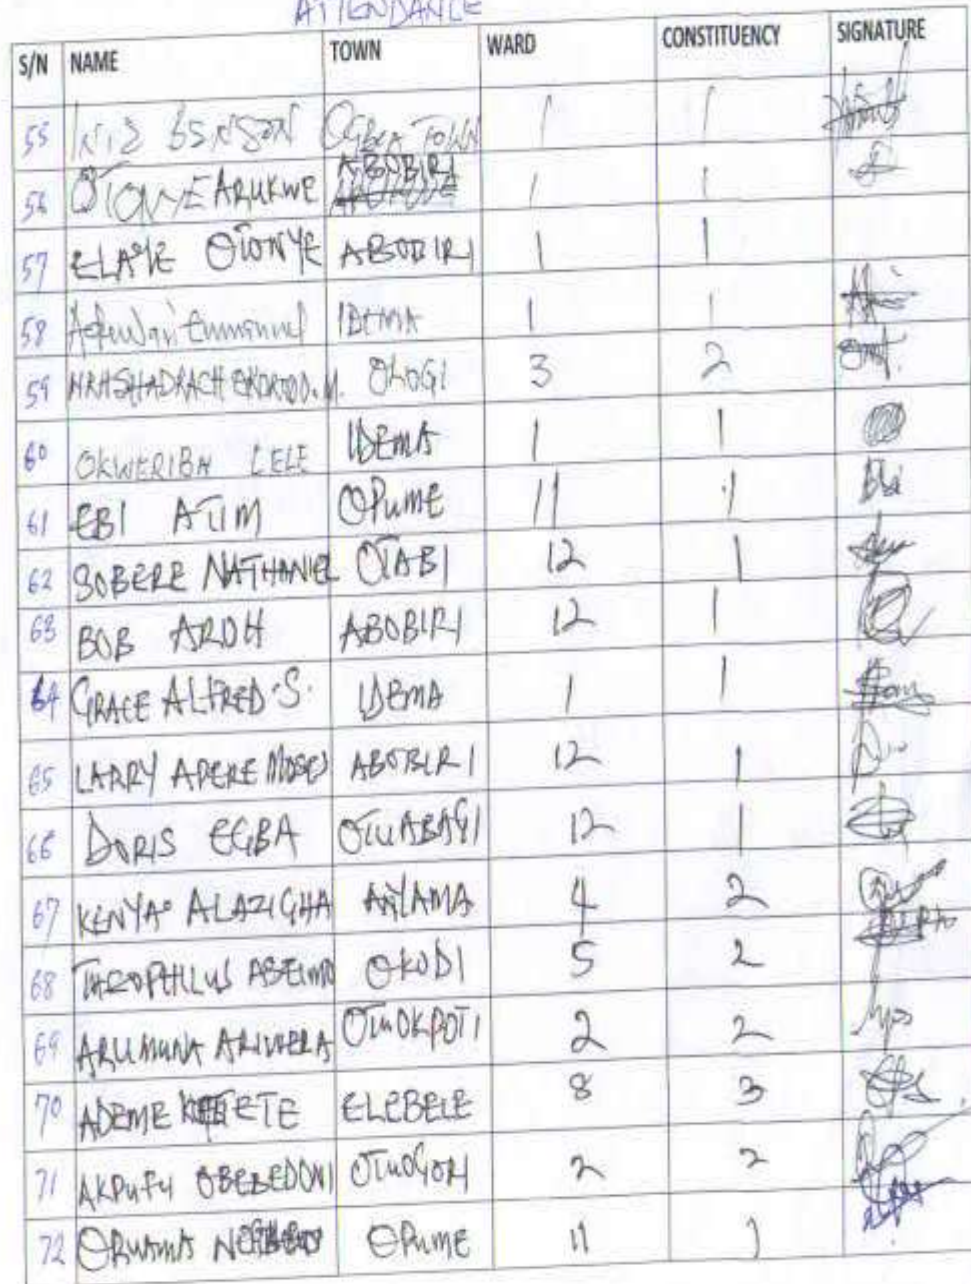 ATTENDANCE
S/N NAME TOWN WARD CONSTITUENCY SIGNATURE
55 BENSON OGBIA TOWN 1 1
56 OTONYE ARUKWE ABOBIRI 1 1
57 ELAYE OTONYE ABOBIRI 1 1
58 Emmanuel IDEMA 1 1
59 OLOGI 3 2
60 OKWERIBA LELE IDEMA 1 1
61 EBI ATIM OPUME 11 1
62 SOBERE NATHANIEL OTABI 12 1
63 BOB AROH ABOBIRI 12 1
64 GRACE ALFRED .S. IDEMA 1 1
65 LARRY APERE MOSES ABOBIRI 12 1
66 DORIS EGBA OTUABAGI 12 1
67 KENYA ALAZIGHA ANYAMA 4 2
68 THEOPHILUS OKODI 5 2
69 ARUMUNA OTUOKPOTI 2 2
70 ADEME ELEBELE 8 3
71 AKPUFU OBEBEDONI OTUOGORI 2 2
72 ORUAMA OPUME 11 1